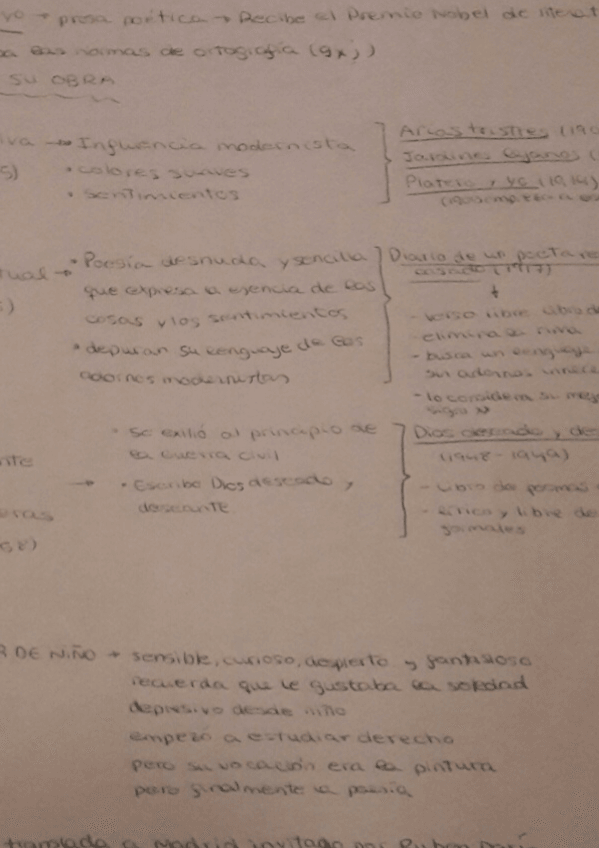 vo → prosa poética → Recibe el Premio Nobel de literat
ba las normas de ortografía (g x j)
SU OBRA
iva → Influencia modernista
5) • colores suaves
• sentimientos
Arias tristes (190
Jardines lejanos (
Platero y yo (1914)
tual → • Poesía desnuda y sencilla
que expresa la esencia de las
cosas y los sentimientos
• depuran su lenguaje de los
adornos modernistas
Diario de un poeta re
casado (1917)
↓
- verso libre libro de
elimina la rima
- busca un lenguaje
sin adornos innece
- lo considera su mej
siglo XX
nte → • Se exilió al principio de
la Guerra civil
• Escribe Dios deseado y
deseante
eras
58)
Dios deseado y de
(1948-1949)
- Libro de poemas
- lírico y libre de
formales
R DE NIÑO → sensible, curioso, despierto y fantasioso
recuerda que le gustaba la soledad
depresivo desde niño
empezó a estudiar derecho
pero su vocación era la pintura
pero finalmente la poesía
translada a Madrid invitado por Rubén Darí